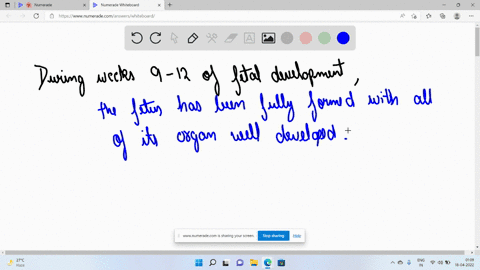 Numerade
Numerade Whiteboard
https://www.numerade.com/answers/whiteboard/
During weeks 9-12 of fetal development,
the fetus has been fully formed with all
of its organ well developed.
www.numerade.com is sharing your screen.
Stop sharing
Hide
21°C
ENG
IN